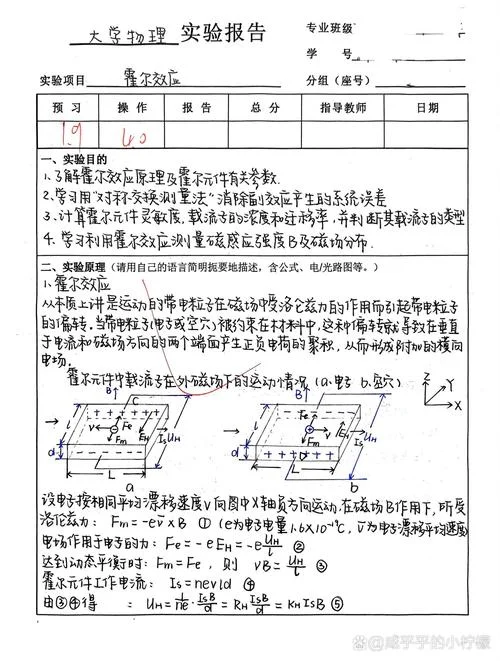 大学物理 实验报告
专业班级
学 号
实验项目 霍尔效应 分组（座号）
预 习 操 作 报 告 总 分 指导教师 日期
1.9 40
一、实验目的
1.了解霍尔效应原理及霍尔元件有关参数.
2.学习用"对称交换测量法"消除副效应产生的系统误差
3.计算霍尔元件灵敏度,载流子的浓度和迁移率,并判断其载流子的类型
4.学习利用霍尔效应测量磁感应强度B及磁场分布.
二、实验原理（请用自己的语言简明扼要地描述，含公式、电/光路图等。）
1.霍尔效应
从本质上讲是运动的带电粒子在磁场中受洛伦兹力的作用而引起带电粒子
的偏转.当带电粒子(电子或空穴)被约束在材料中,这种偏转就导致在垂直
于电流和磁场方向的两个端面产生正负电荷的聚积,从而形成附加的横向
电场.
霍尔元件中载流子在外磁场下的运动情况(a.电子 b.空穴)
B C Fe V Fm EH Is UH l d L a
B Fe V Fm EH Is UH l d D L b
Z Y X
设电子按相同平均漂移速度v向图中X轴负方向运动,在磁场B作用下,所受
洛伦兹力: Fm=-ev̄×B ① (e为电子电量1.6×10⁻¹⁹C, v̄为电子漂移平均速度)
电场作用于电子的力: Fe=-eEH=-e UH/l ②
达到动态平衡时: Fm=Fe, 则 vB=UH/l ③
霍尔元件工作电流: Is=nevld ④
由③④得 : UH=1/ne·IsB/d=RH IsB/d=KHIsB ⑤
@咸乎乎的小柠檬